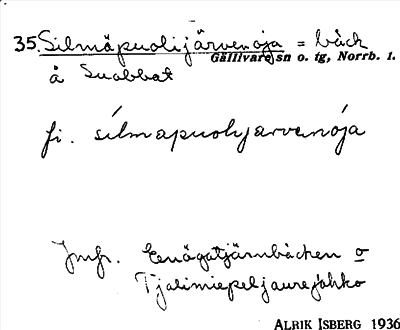 35. Silmäpuolijärvenoja = bäck
Gällivare sn o. tg, Norrb. l.
å Suabbat
fi. sílmapuolyjarvenója
Jmfr. Enögatjärnbäcken o
Tjalimiepeljaurejåhko
ALRIK ISBERG 1936